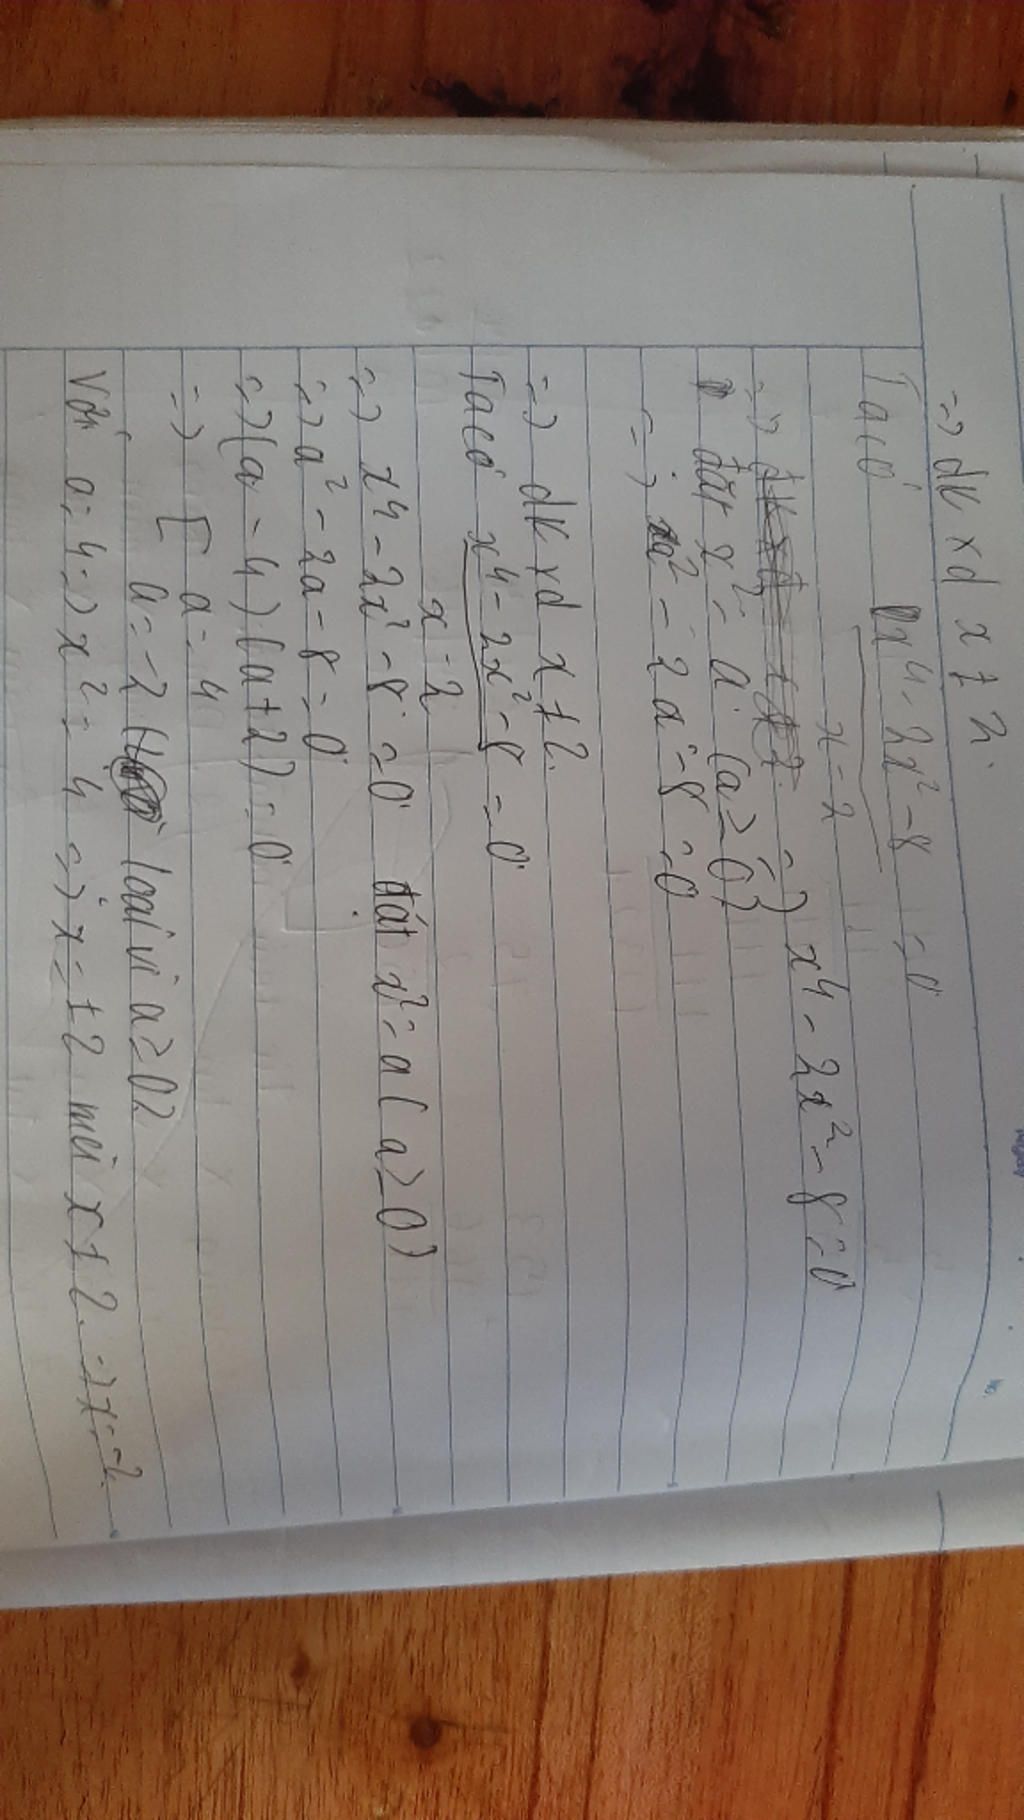 => đk xđ x ≠ 2.
Ta có x⁴ - 2x² - 8 = 0
x - 2
=> x⁴ - 2x² - 8 = 0
đặt x² = a (a ≥ 0)
=> a² - 2a - 8 = 0
=> đk xđ x ≠ 2.
Ta có x⁴ - 2x² - 8 = 0
x - 2
=> x⁴ - 2x² - 8 = 0 đặt x² = a (a ≥ 0)
=> a² - 2a - 8 = 0
=> (a - 4)(a + 2) = 0
=> [ a = 4
a = -2 (loại vì a ≥ 0)
Với a = 4 => x² = 4 => x = ±2 mà x ≠ 2. => x = -2.